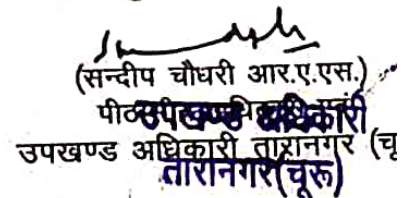 (सन्दीप चौधरी आर.ए.एस.)
उपखण्ड अधिकारी
उपखण्ड अधिकारी तारानगर (चू
तारानगर(चूरू)